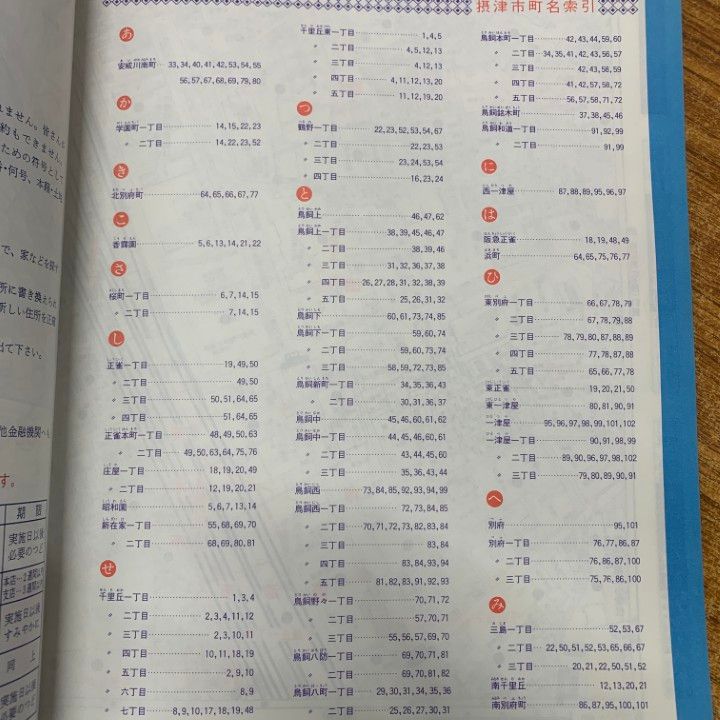 摂津市町名索引
れません。皆さん
約もできません。
ための符号として
で、家などを探す
所に書き換えられ
新しい住所を正確
出て下さい。
他金融機関へも
す。
期限
実施日以後
必要のつど
本店…2週間以
支店…3週間以
実施日以後
すみやかに
同上
実施日以後
必要のつど
あ
安威川南町 33,34,40,41,42,53,54,55
56,57,67,68,69,79,80
か
学園町一丁目 14,15,22,23
〃 二丁目 14,22,23,52
き
北別府町 64,65,66,67,77
こ
香露園 5,6,13,14,21,22
さ
桜町一丁目 6,7,14,15
〃 二丁目 7,14,15
し
正雀一丁目 19,49,50
〃 二丁目 49,50
〃 三丁目 50,51,64,65
〃 四丁目 51,64,65
正雀本町一丁目 48,49,50,63
〃 二丁目 49,50,63,64,75,76
庄屋一丁目 18,19,20,49
〃 二丁目 12,19,20,21
昭和園 5,6,7,13,14
新在家一丁目 55,68,69,70
〃 二丁目 68,69,80,81
せ
千里丘一丁目 1,3,4
〃 二丁目 2,3,4,11,12
〃 三丁目 2,3,10,11
〃 四丁目 10,11,18,19
〃 五丁目 2,9,10
〃 六丁目 8,9
〃 七丁目 8,9,10,17,18,19,48
千里丘東一丁目 1,4,5
〃 二丁目 4,5,12,13
〃 三丁目 4,12,13
〃 四丁目 4,11,12,13,20
〃 五丁目 11,12,19,20
つ
鶴野一丁目 22,23,52,53,54,67
〃 二丁目 22,23,53
〃 三丁目 23,24,53,54
〃 四丁目 16,23,24
と
鳥飼上 46,47,62
鳥飼上一丁目 38,39,45,46,47
〃 二丁目 38,39,46
〃 三丁目 31,32,36,37,38
〃 四丁目 26,27,28,31,32,38,39
〃 五丁目 25,26,31,32
鳥飼下 60,61,73,74,85
鳥飼下一丁目 59,60,74
〃 二丁目 59,60,73,74
〃 三丁目 58,59,72,73,85
鳥飼新町一丁目 34,35,36,43
〃 二丁目 30,31,36,37
鳥飼中 45,46,60,61,62
鳥飼中一丁目 44,45,46,60,61
〃 二丁目 43,44,45,60
〃 三丁目 35,36,43,44
鳥飼西 73,84,85,92,93,94,99
鳥飼西一丁目 72,73,84,85
〃 二丁目 70,71,72,73,82,83,84
〃 三丁目 83,84
〃 四丁目 83,84,93,94
〃 五丁目 81,82,83,91,92,93
鳥飼野々一丁目 70,71,72
〃 二丁目 57,70,71
〃 三丁目 55,56,57,69,70
鳥飼八防一丁目 69,70,71,81
〃 二丁目 69,70,81,82
鳥飼八町一丁目 29,30,31,34,35,36
〃 二丁目 25,26,27,30,31
鳥飼本町一丁目 42,43,44,59,60
〃 二丁目 34,35,41,42,43,56,57
〃 三丁目 42,43,56,59
〃 四丁目 41,42,57,58,72
〃 五丁目 56,57,58,71,72
鳥飼銘木町 37,38,45,46
鳥飼和道一丁目 91,92,99
〃 二丁目 91,99
に
西一津屋 87,88,89,95,96,97
は
阪急正雀 18,19,48,49
浜町 64,65,75,76,77
ひ
東別府一丁目 66,67,78,79
〃 二丁目 67,78,79,88
〃 三丁目 78,79,80,87,88,89
〃 四丁目 77,78,87,88
〃 五丁目 65,66,77,78
東正雀 19,20,21,50
東一津屋 80,81,90,91
一津屋 95,96,97,98,99,101,102
一津屋一丁目 90,91,98,99
〃 二丁目 89,90,96,97,98,102
〃 三丁目 79,80,89,90,91
へ
別府 95,101
別府一丁目 76,77,86,87
〃 二丁目 76,86,87,100
〃 三丁目 75,76,86,100
み
三島一丁目 52,53,67
〃 二丁目 22,50,51,52,53,65,66,67
〃 三丁目 20,21,22,50,51,52
南千里丘 12,13,20,21
南別府町 86,87,95,100,101